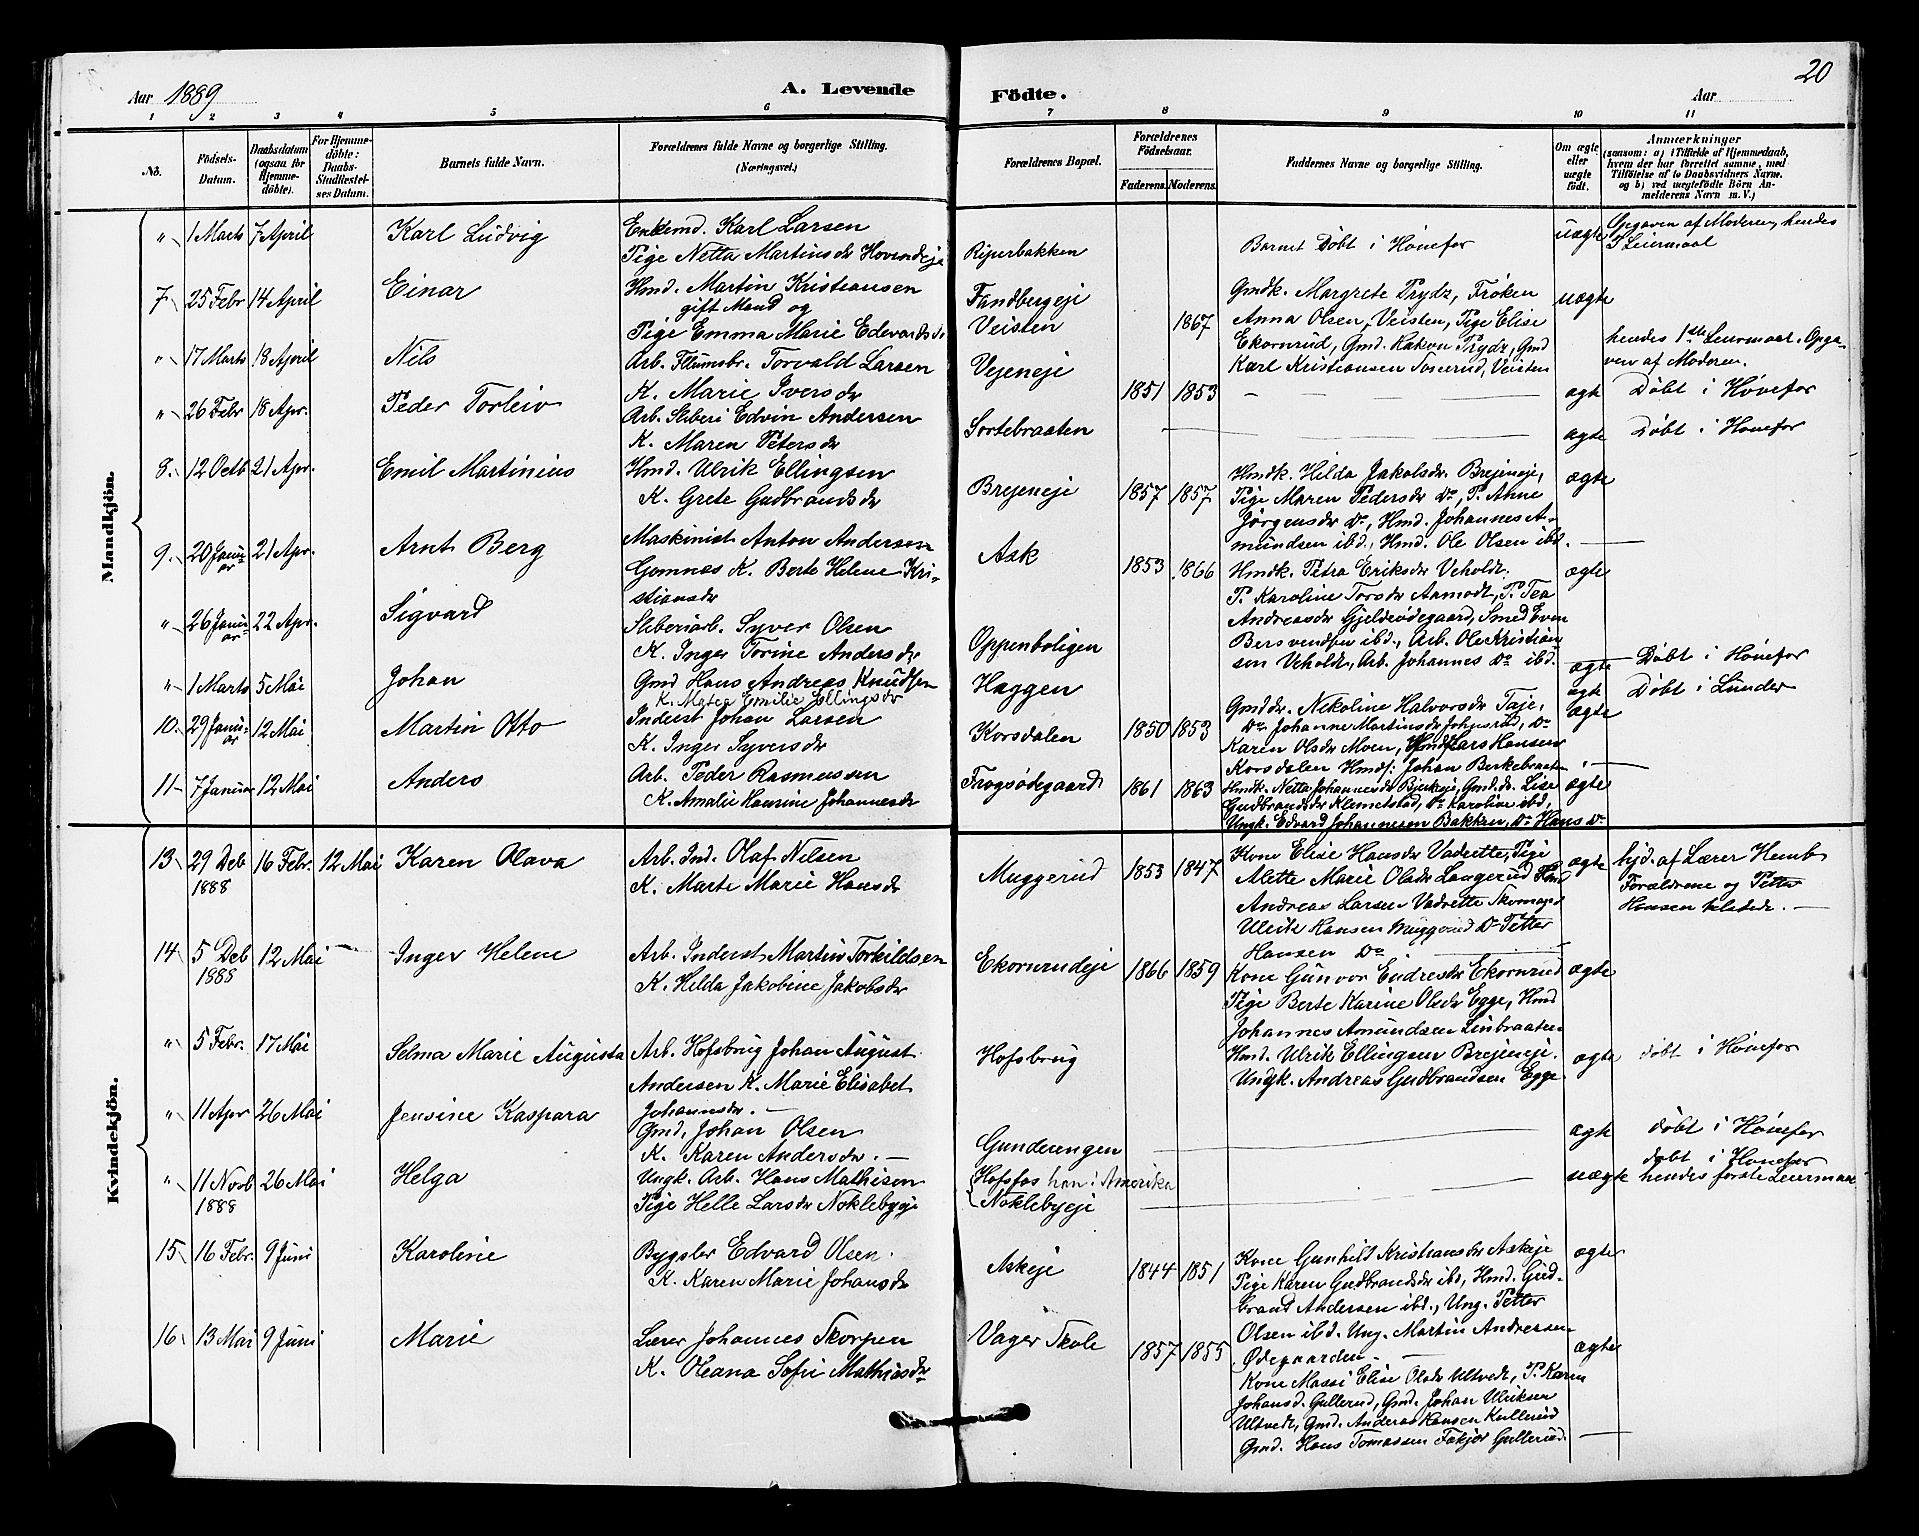 Aar 1889
A. Levende
Födte.
Aar
20
1 2 3 4 5 6 7 8 9 10 11
No.
Födsels-Datum.
Daabsdatum (ogsaa for Hjemmedöbte).
For Hjemmedöbte: Daabs-Stadfæstelses Datum.
Barnets fulde Navn.
Forældrenes fulde Navne og borgerlige Stilling.
(Næringsvei.)
Forældrenes Bopæl.
Forældrenes Födselsaar.
Faderens. Moderens.
Faddernes Navne og borgerlige Stilling.
Om ægte eller uægte födt.
Anmærkninger
(saasom: a) i Tilfælde af Hjemmedaab, hvem der har forrettet samme, med Tilföielse af to Daabsvidners Navne. og b) ved uægtefödte Börn Anmelderens Navn m. V.)
Mandkjön.
" 1 Marts 7 April Karl Ludvig Enkemd. Karl Larsen
Pige Netta Martinsdr Hovendeje Riperbakken Barnet Döbt i Hönefos uægte Opgaven af Moderen, hendes
Leiermaal
7 25 Febr 14 April Einar Hmd. Martin Kristiansen
gift Mand og
Pige Emma Marie Edvardsdr Fandbergeje
Veisten 1867 Gmdk. Margrete Prydz, Fröken
Anna Olsen, Veisten, Pige Elise
Ekornrud, Gmd. Hakon Prydz, Gmd
Karl Kristiansen Toserud, Veisten uægte
hendes 1ste Leiermaal. Opga-
ven af Moderen.
" 17 Marts 18 April Nils Arb. Torvald Larsen
K. Marie Iversdr Vejeneje 1851 1853 ægte Döbt i Hönefos
" 26 Febr 18 Apr. Peder Torleiv Arb. Sliberi Edvin Andersen
K. Maren Petersdr Sortebraaten ægte Döbt i Hönefos
8. 12 Octb 21 Apr. Emil Martinius Hmd. Ulrik Ellingsen
K. Grete Gudbrandsdr Brejeneje 1857 1857 Hmdk. Hilda Jakobsdr Brejeneje,
Pige Maren Pedersdr Do, P. Anne
Jörgensdr Do, Hmd. Johannes A-
mundsen ibd., Hmd. Ole Olsen ibd. ægte
9. 20 Januar 21 Apr. Arnt Berg Maskinist Anton Andersen
Gomnæs K. Berte Helene Kri-
stiansdr Ask 1853 1866 Hmdk. Petra Eriksdr Veholdt
P. Karoline Torsdr Aamodt, P. Tea
Andreasdr Gjeldeödegaard, Smed Even
Bersvendsen ibd., Arb. Ole Kristian-
sen Veholdt, Arb. Johannes Do ibd. ægte
" 26 Januar 22 Apr. Sigvard Sliberiarb. Syver Olsen
K. Inger Torine Andersdr Oppenboligen ægte Döbt i Hönefos
" 1 Marts 5 Mai Johan Gmd Hans Andreas Knudsen
K. Matea Emilie Ellingsdr Haggen ægte Döbt i Lunder
10. 29 Januar 12 Mai Martin Otto Inderst Johan Larsen
K. Inger Syversdr Korsdalen 1850 1853 Gmddr. Nekoline Halvorsdr Taje,
Do Johanne Martinsdr, Do
Karen Olsdr Moen, Hmd Lars Hansen
Korsdalen Hmdsj Johan Berkebraaten ægte
11 7 Januar 12 Mai Anders Arb. Peder Rasmussen
K. Amalie Hansine Johannesdr Frogsödegaard 1861 1863 Hmdk. Netta Johannesdr Bjerkeje, Gmd.dr. Lise
Gudbrandsdr Klemetstad, Do Karoline ibd,
Ungk. Edvard Johannesen Bakken, Do Hans Do ægte
Kvindekjön.
13 29 Deb 1888 16 Febr. 12 Mai Karen Olava Arb. Ind. Olaf Nilsen
K. Marte Marie Hansdr Muggerud 1853 1847 Kone Elise Hansdr Vadrette, Pige
Alette Marie Olsdr Langerud Hmd
Andreas Larsen Vadrette Skomager
Ulrik Hansen Muggerud Do Petter
Hansen Do ægte hjd. af Lærer Hemb
Forældrene og Petter
Hansen tilstede.
14 5 Deb 1888 12 Mai Inger Helene Arb. Inderst Martin Torkildsen
K. Hilda Jakobine Jakobsdr Ekornrudeje 1866 1859 Kone Gunvor Endresdr Ekornrud
Pige Berte Karine Olsdr Egge, Hmd
Johannes Amundsen Linbraaten
Hmd. Ulrik Ellingsen Brejeneje.
Ungk. Andreas Gudbrandsen Egge ægte
" 5 Febr. 17 Mai Selma Marie Augusta Arb. Hofsbrug Johan August
Andersen K. Marie Elisabet
Johannsdr. Hofsbrug ægte döbt i Hönefos
" 11 Apr 26 Mai Jensine Kaspara Gmd. Johan Olsen
K. Karen Andersdr. Gunderengen ægte döbt i Hönefos
" 11 Novb 1888 26 Mai Helga Ungk. Arb. Hans Mathisen
Pige Helle Larsdr Noklebyeje Hofsfos han i Amerika
Noklebyeje uægte döbt i Hönefos
hendes förste Leiermaal
15 16 Febr. 9 Juni Karoline Bygsler Edvard Olsen.
K. Karen Marie Johansdr Askeje 1844 1851 Kone Gunhild Kristiansdr Askeje
Pige Karen Gudbrandsdr ibd, Hmd. Gud-
brand Andersen ibd., Ung. Petter
Olsen ibd. Ung. Martin Andersen
Ödegaarden ægte
16 13 Mai 9 Juni Marie Lærer Johannes Skorpen
K. Oleana Sofie Mathiasdr Vager Skole 1857 1855 Kone Massi Elise Olsdr Ultvedt, P. Karen
Johansd. Gullerud, Gmd. Johan Ulriksen
Ultvedt, Gmd. Anders Hansen Kullerud
Gmd. Hans Tomassen Gullerud. ægte